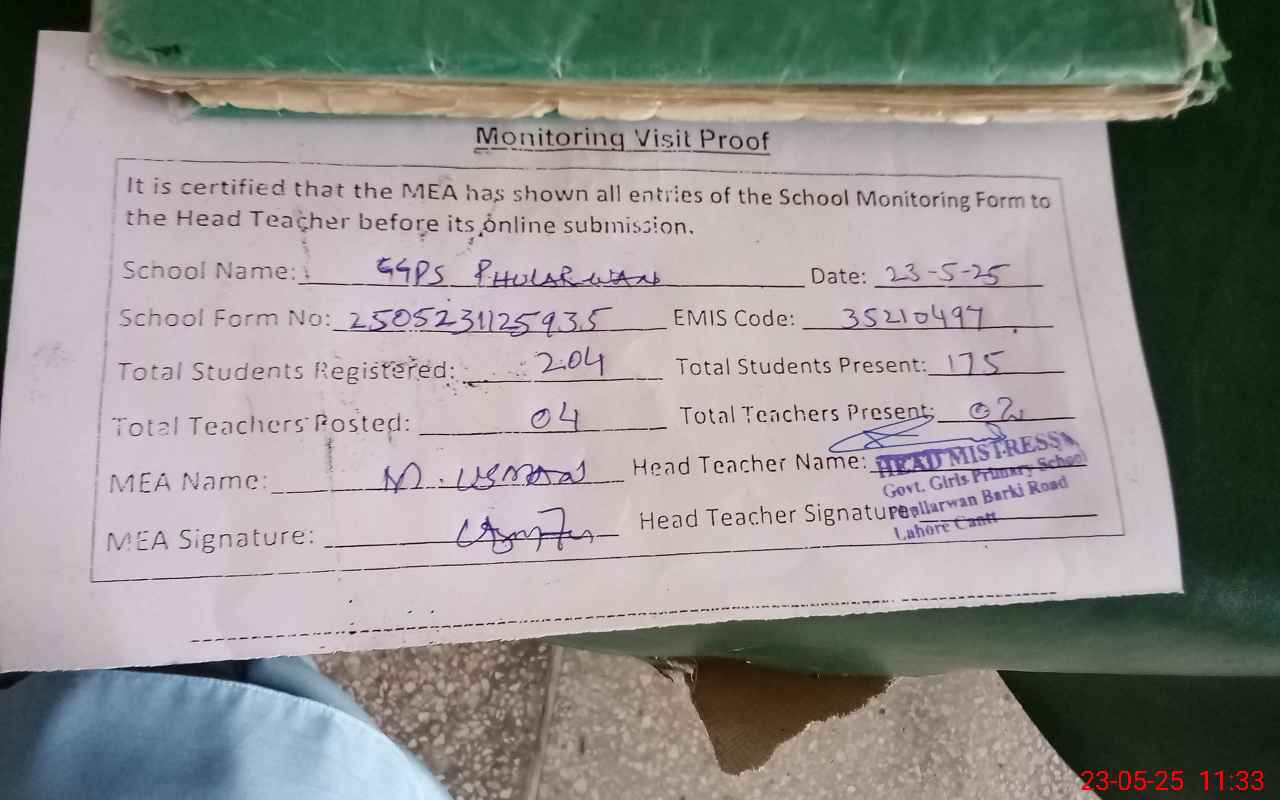 Monitoring Visit Proof
It is certified that the MEA has shown all entries of the School Monitoring Form to
the Head Teacher before its online submission.
School Name: GGPS PHULARWAN Date: 23-5-25
School Form No: 2505231125935 EMIS Code: 35210497
Total Students Registered: 204 Total Students Present: 175
Total Teachers Posted: 04 Total Teachers Present: 02
MEA Name: M. USMAN Head Teacher Name:
HEAD MISTRESS
Govt. Girls Primary School
MEA Signature: Head Teacher Signature:
Phullarwan Barki Road
Lahore Cantt
23-05-25 11:33